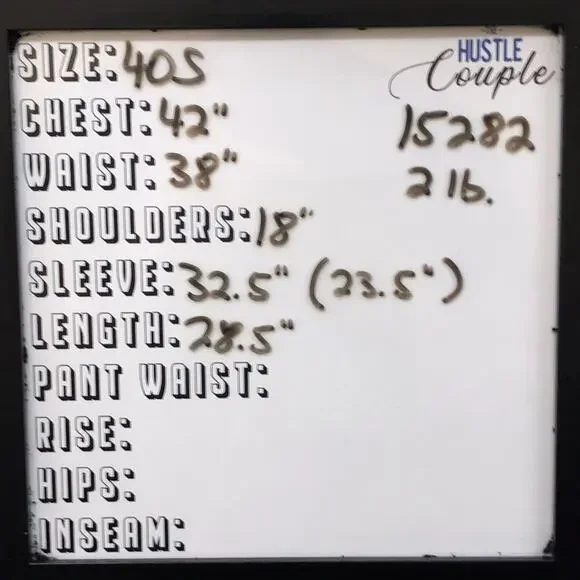 HUSTLE
Couple
SIZE: 40S
CHEST: 42"
15282
WAIST: 38"
2 lb.
SHOULDERS: 18"
SLEEVE: 32.5" (23.5")
LENGTH: 28.5"
PANT WAIST:
RISE:
HIPS:
INSEAM: